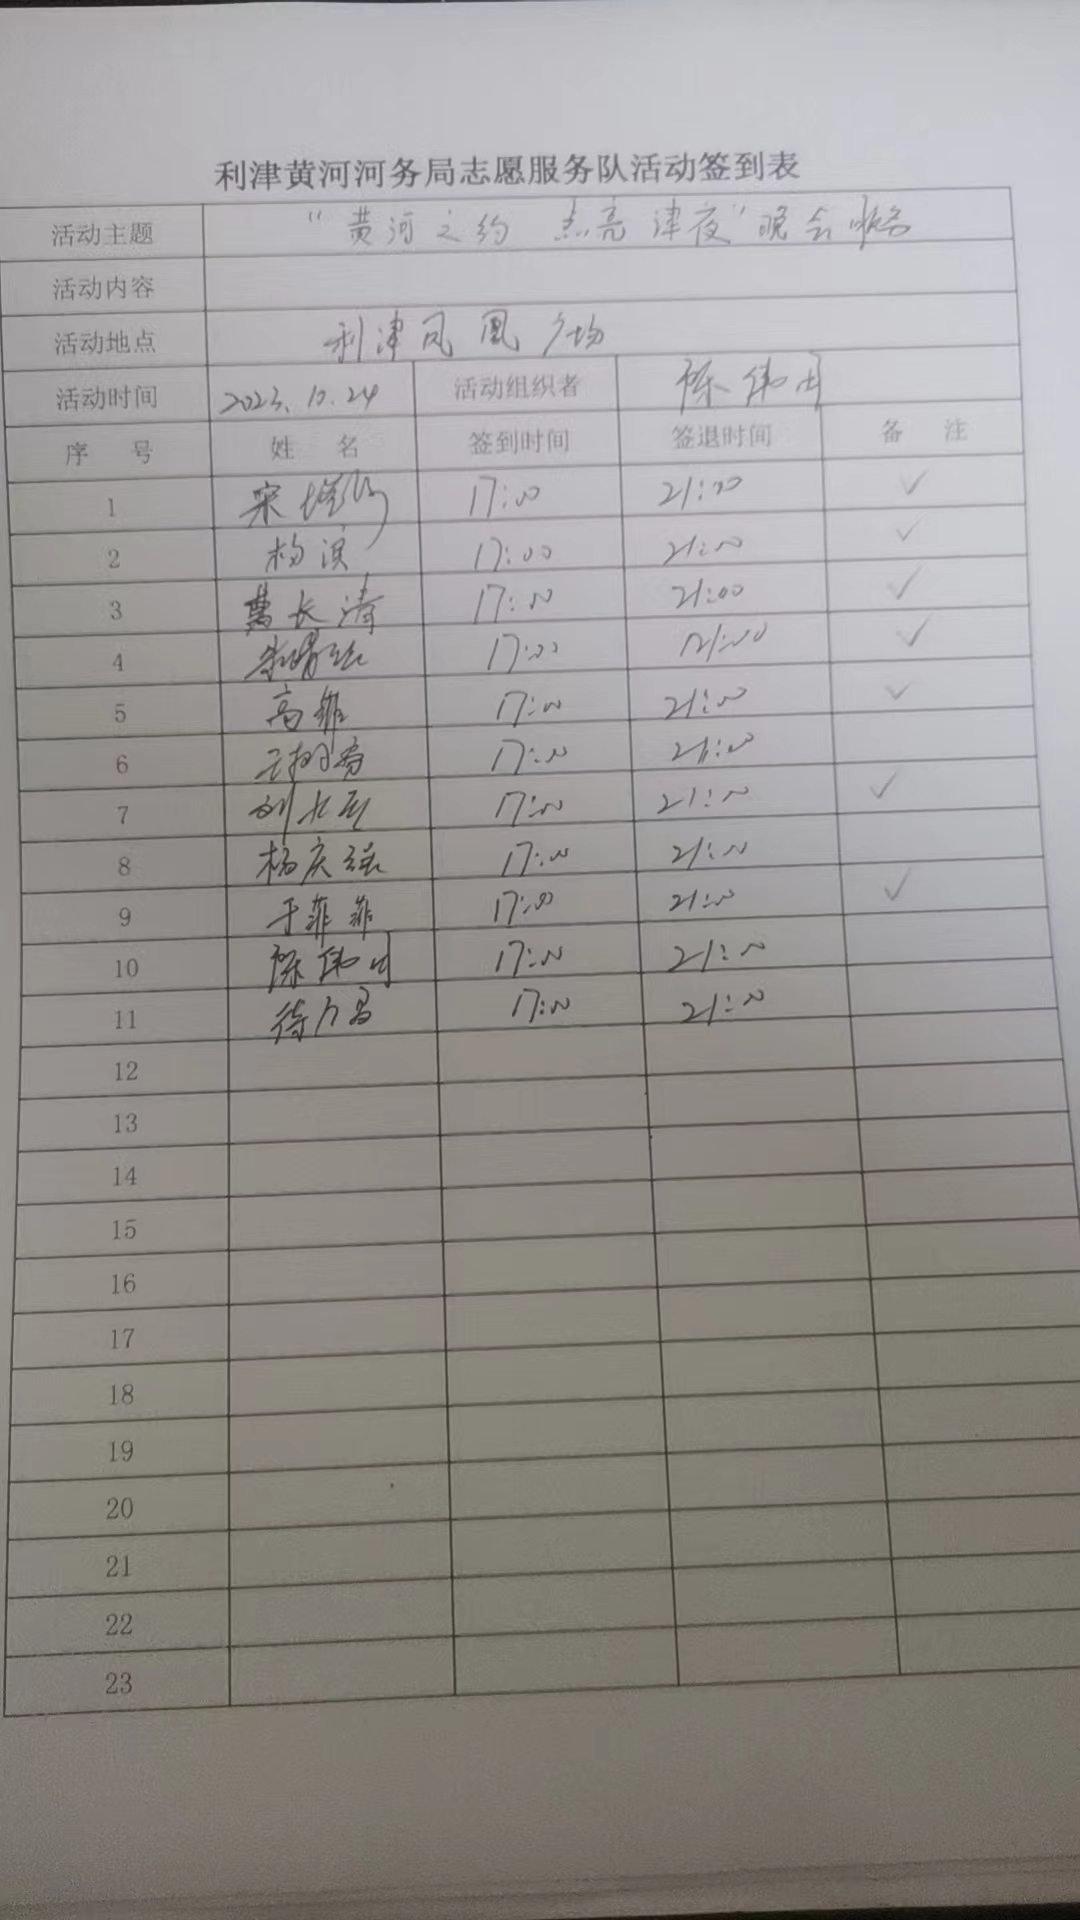 利津黄河河务局志愿服务队活动签到表
活动主题 "黄河之约 点亮津夜"晚会服务
活动内容
活动地点 利津凤凰广场
活动时间 2023.10.24 活动组织者 陈伟
序 号 姓 名 签到时间 签退时间 备 注
1 宋 17:00 21:00 ✓
2 杨滨 17:00 21:00 ✓
3 长清 17:00 21:00 ✓
4 17:00 21:00 ✓
5 高雅 17:00 21:00 ✓
6 17:00 21:00
7 刘 17:00 21:00 ✓
8 杨庆强 17:00 21:00
9 于菲菲 17:00 21:00 ✓
10 陈伟 17:00 21:00
11 17:00 21:00
12
13
14
15
16
17
18
19
20
21
22
23